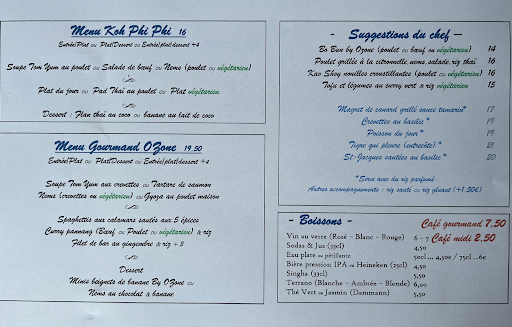 Menu Koh Phi Phi 16
Entrée/Plat ou Plat/Dessert ou Entrée/plat/dessert +4
Soupe Tom Yum au poulet ou Salade de bœuf ou Nems (poulet ou végétarien)
Plat du jour ou Pad Thaï au poulet ou Plat végétarien
Dessert : Flan thaï au coco ou banane au lait de coco
Menu Gourmand OZone 19.50
Entrée/Plat ou Plat/Dessert ou Entrée/plat/dessert +4
Soupe Tom Yum aux crevettes ou Tartare de saumon
Nems (crevettes ou végétarien) ou Gyoza au poulet maison
Spaghettis aux calamars sautés aux 5 épices
Curry pannang (Bœuf ou Poulet ou végétarien) & riz
Filet de bar au gingembre & riz + 3
Dessert
Minis beignets de banane By OZone ou
Nems au chocolat & banane
- Suggestions du chef –
Bo Bun by Ozone (poulet ou bœuf ou végétarien) 14
Poulet grillé à la citronnelle, nems, salade, riz thaï 16
Kao Shoy nouilles croustillantes (poulet ou végétarien) 16
Tofu et légumes au curry vert & riz végétarien 15
Magret de canard grillé sauce tamarin* 17
Crevettes au basilic * 19
Poisson du jour * 19
Tigre qui pleure (entrecôte) * 21
St-Jacques sautées au basilic * 20
*Servi avec du riz parfumé
Autres accompagnements : riz sauté ou riz gluant (+1.50€)
- Boissons -
Café gourmand 7,50
Vin au verre (Rosé – Blanc – Rouge) 6 - 7
Café midi 2,50
Sodas & Jus (33cl) 4,50
Eau plate ou pétillante 50cl ... 4,50€ / 75cl ...6€
Bière pression IPA ou Heineken (25cl) 4,50
Singha (33cl) 5,50
Terrano (Blanche – Ambrée – Blonde) 6,00
Thé Vert ou Jasmin (Dammann) 5,50